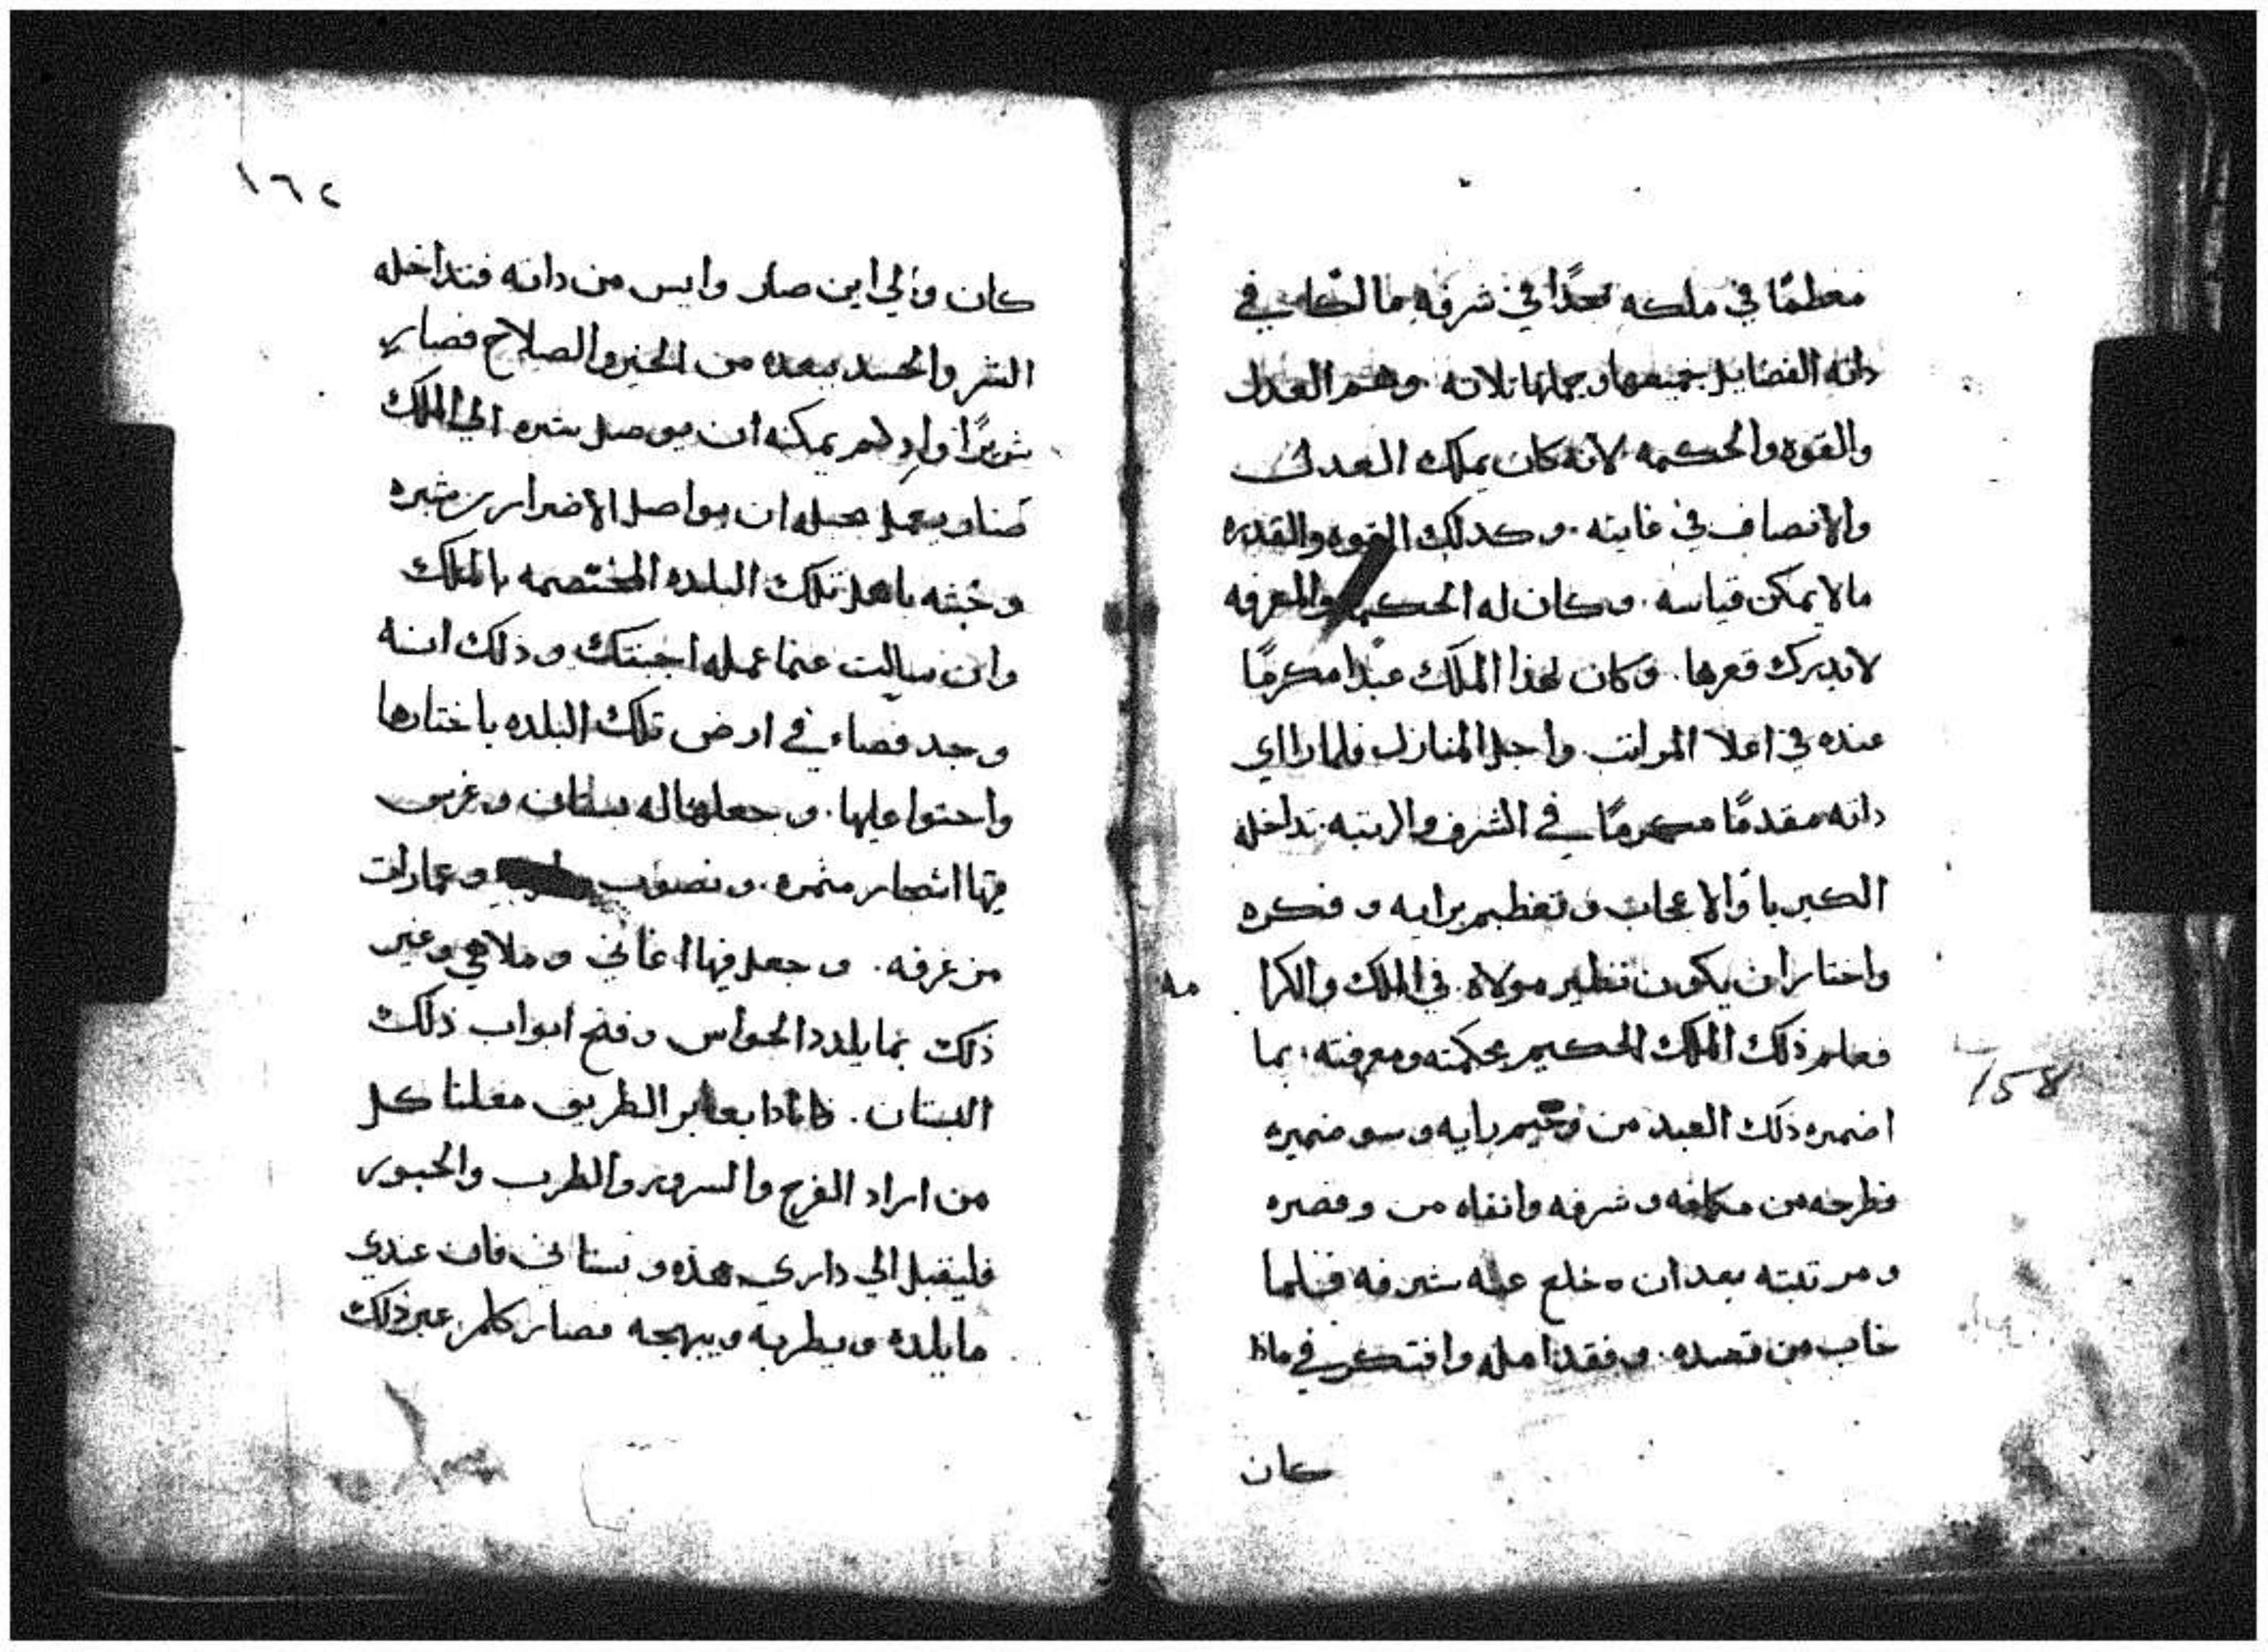 معظمًا في ملكه ممجدًا في شرفه مالكا في
داته الفضايل جميعها وجملتها تلاته وهم العدل
والقوه والحكمه لانه كان يملك العدل
والانصاف في غايته. وكدلك القوه والقدره
ما لا يمكن قياسه. وكان له الحكمه والمعرفه
لا يدرك قعرها. وكان لهذا الملك عبدا مكرمًا
عنده في اعلا المراتب واجل المنازل فلما رااي
داته مقدمًا مكرمًا في الشرف والرتبه تداخله
الكبريا والاعجاب وتعظيم برايه وفكره
واختار ان يكون نظير مولاه في الملك والكرا
مه
فعلم ذلك الملك الحكيم بحكمته ومعرفته بما
اضمره ذلك العبد من وخيم رايه وسو ضميره
فطرحه من مكانه وشرفه وانفاه من وقصره
ومرتبته بعد ان خلع عنه شرفه فلما
خاب من قصده. وفقد امله وافتكر في ماذا
كان
158
١٦٢
كان والي اين صار وايس من داته فتداخله
الشر والحسد ببعده من الخير والصلاح فصار
شريرًا واد لم يمكنه ان يوصل شره الي الملك
فصار يعمل بحيله ان يواصل الاضرار بشره
وخبثه باهل تلك البلده المختصه بالملك
وان سالت عنما عمله اجبتك وذلك انه
وجد فضاء في ارض تلك البلده باختارها
واحتوا عليها. وجعلها له بستان وغرس
فيها اشجار مثمره. ونصوب وعمارات
مزعرفه. وجعل فيها اغاني وملاهي وغير
ذلك بما يلدد الحواس وفتح ابواب ذلك
البستان. منادا بعابر الطريق معلنا كل
من اراد الفرح والسرور والطرب والحبور
فليقبل الي داري هذه وبستاني فان عندي
ما يلده ويطربه ويبهجه فصار كلمن عبر ذلك